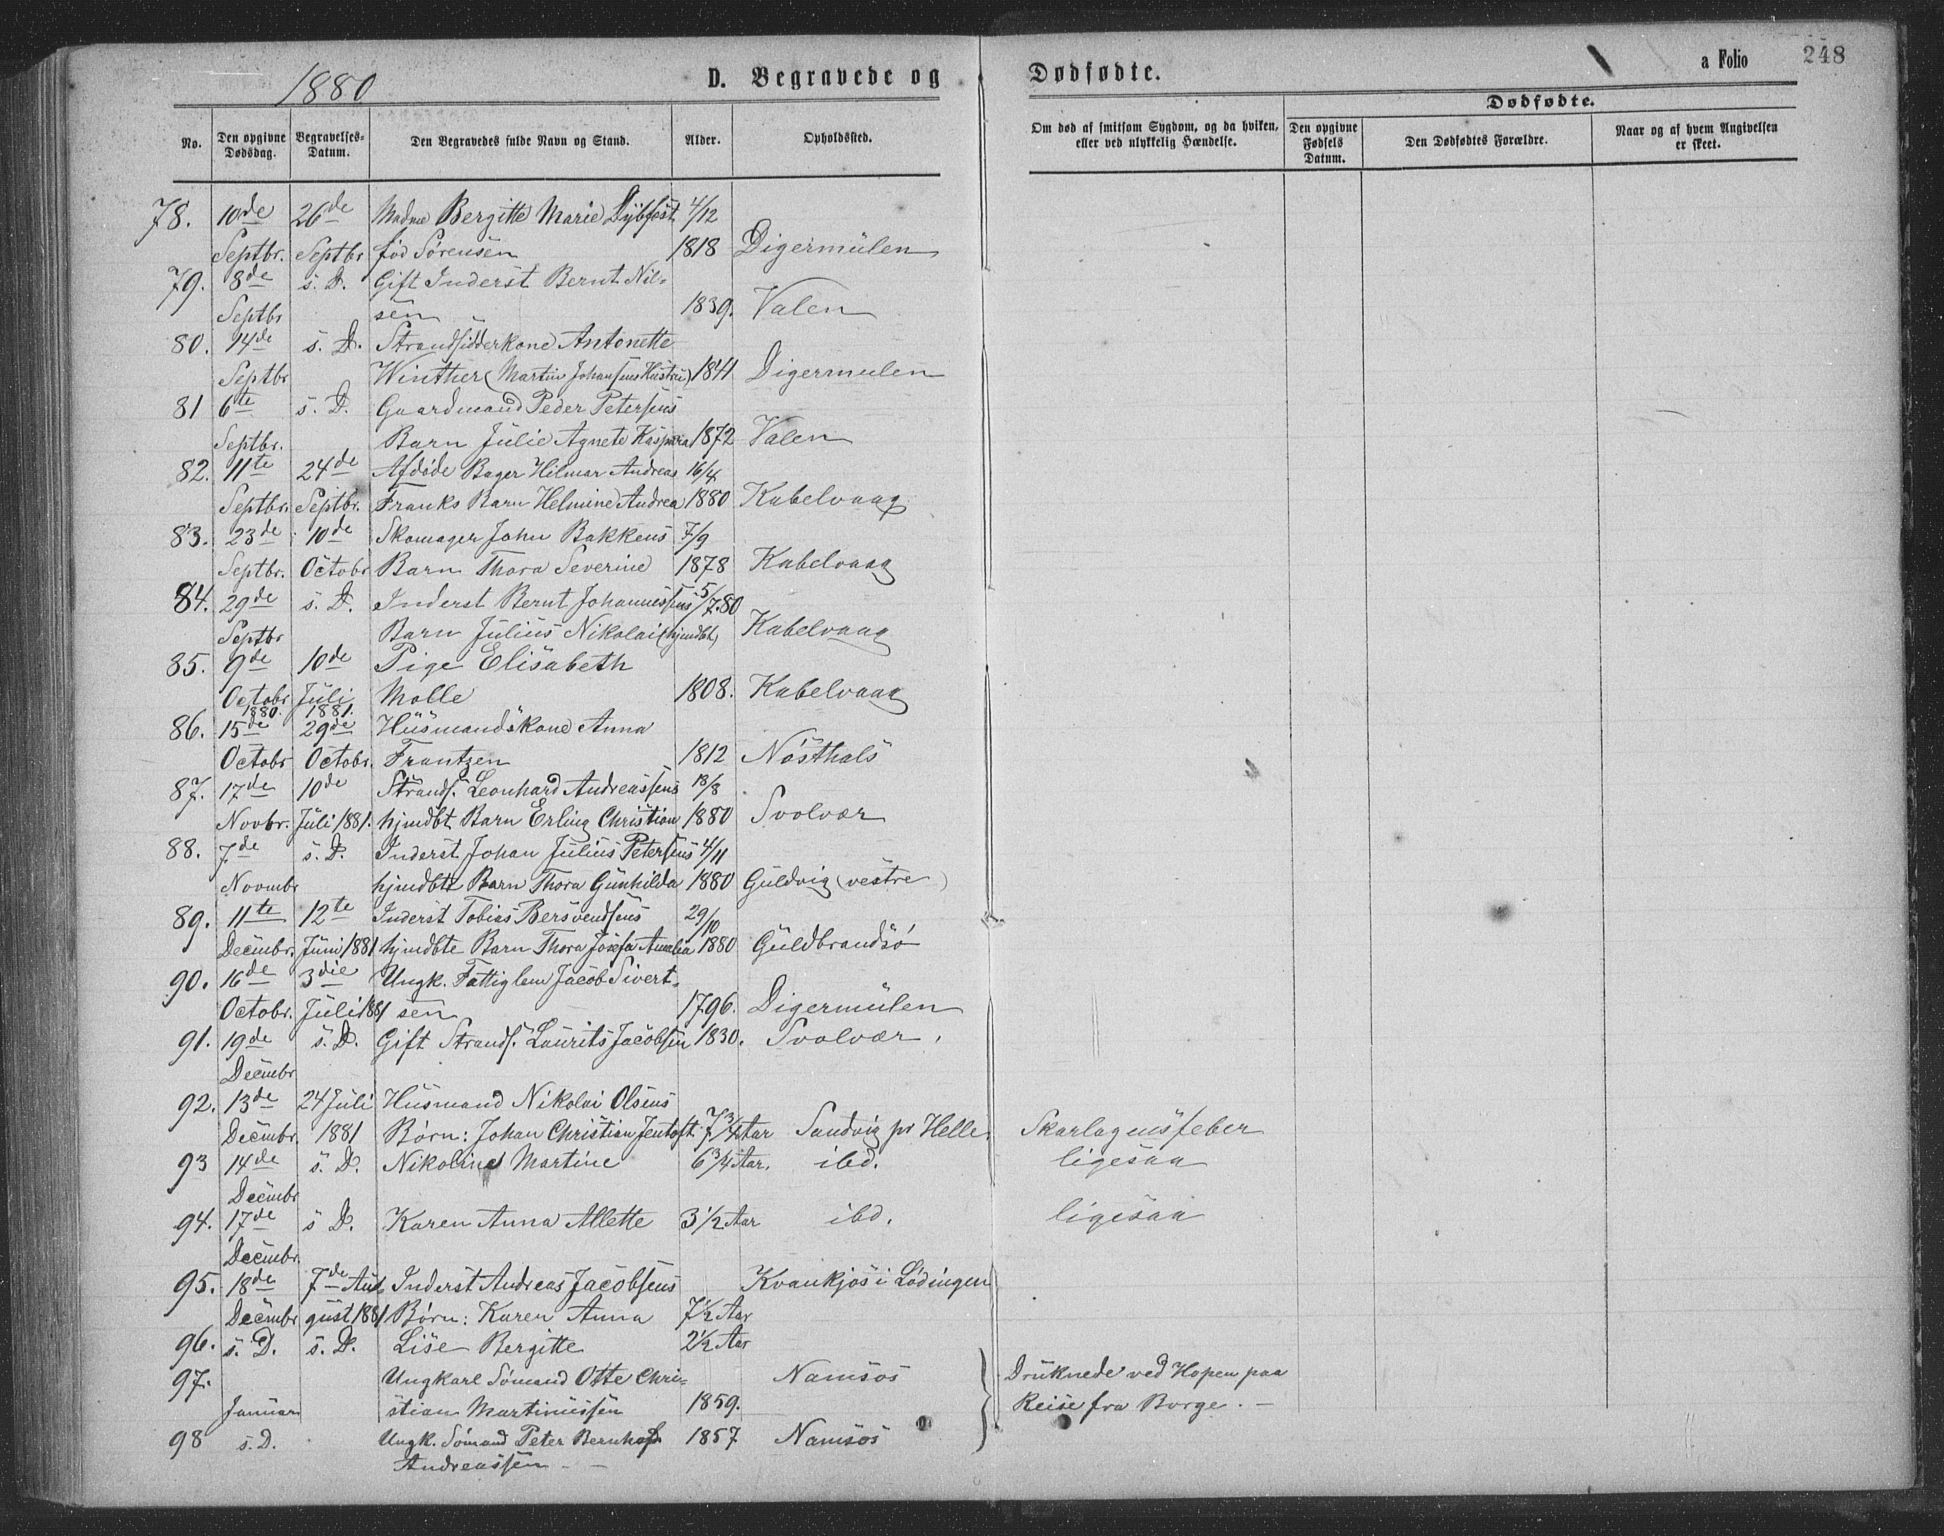 1880
D. Begravede og Dødfødte.
a Folio 248
Dødfødte.
No. Den opgivne Dødsdag. Begravelses-Datum. Den Begravedes fulde Navn og Stand. Alder. Opholdssted. Om død af smitsom Sygdom, og da hvilken, eller ved ulykkelig Hændelse. Den opgivne Fødsels Datum. Den Dødfødtes Forældre. Naar og af hvem Angivelsen er skeet.
78. 10de 26de Madme Bergitte Marie Dybfest 4/12
Septbr. Septbr fød Sørensen 1818 Digermulen
79. 8de s. D. Gift Inderst Bernt Nil-
Septbr sen 1839. Valen
80. 14de s. D. Strandsidderkone Antonette
Septbr Winther (Martin Johansens Hustru) 1841 Digermulen
81 6te s. D. Gaardmand Peder Petersens
Septbr. Barn Julie Agnete Kaspara 1872 Valen
82. 11te 24de Afdøde Bager Hilmar Andreas 16/4
Septbr. Septbr. Franks Barn Helmine Andrea 1880 Kabelvaag
83. 23de 10de Skomager John Bakkens 7/9
Septbr. Octobr Barn Thora Severine 1878 Kabelvaag
84. 29de s. D. Inderst Bernt Johannessens 5/7.80
Septbr Barn Julius Nikolai (hjmdbt) Kabelvaag
85. 9de 10de Pige Elisabeth
Octobr 1880. Juli 1881. Molle 1808. Kabelvaag
86. 15de 29de Husmandskone Anna
Octobr Octobr. Frantzen 1812 Nøsthals
87. 17de 10de Strands. Leonhard Andreassens 18/8
Novbr. Juli 1881. hjmdbt Barn Erling Christian 1880 Svolvær
88. 7de s. D. Inderst Johan Julius Petersens 4/11
Novmbr hjmdbte Barn Thora Gunhilda 1880 Guldvig (vestre)
89. 11te 12te Inderst Tobias Bersvendsens 29/10
Decmbr. Juni 1881 hjmdbte Barn Thora Josefa Amalia 1880 Guldbrandsø
90. 16de 3die Ungk. Fattiglem Jacob Sivert-
Octobr. Juli 1881 sen 1796. Digermulen
91. 19de s. D. Gift Strands. Laurits Jacobsen 1830. Svolvær.
Decmbr
92. 13de 24 Juli Husmand Nikolai Olsens
Decmbr. 1881 Børn: Johan Christian Jentoft 7 3/4 Aar Sandvig pr Helle. Skarlagensfeber
93 14de s. D. Nikoline Martine 6 3/4 Aar. ibd. ligesaa
Decmbr
94. 17de s D. Karen Anna Allette 3 1/2 Aar ibd. ligesaa
Decmbr.
95. 18de 7de Au- Inderst Andreas Jacobsens Kvankjos i Lødingen
Decmbr gust 1881 Børn: Karen Anna 7 1/2 Aar
96. s. D. s. D. Lise Bergitte 2 1/2 Aar
97. Ungkarl Sømand Otte Chri- Namsos Druknede ved Hopen paa
Januar stian Martinussen 1859. Reise fra Borge. -
98 s. D. Ungk. Sømand Peter Bernhard 1857 Namsos
Andreassen -